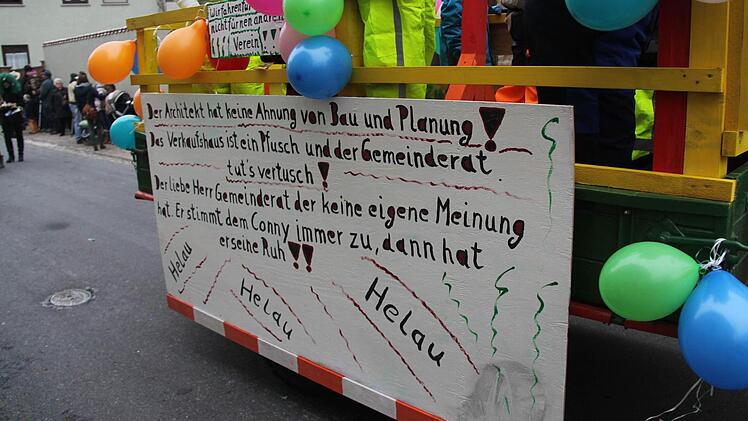 Wir fahren für
nicht für nen andren
Verein
Der Architekt hat keine Ahnung von Bau und Planung!
Das Verkaufshaus ist ein Pfusch und der Gemeinderat
tut's vertusch!
Der liebe Herr Gemeinderat der keine eigene Meinung
hat. Er stimmt dem Conny immer zu, dann hat
er seine Ruh!!
Helau
Helau
Helau